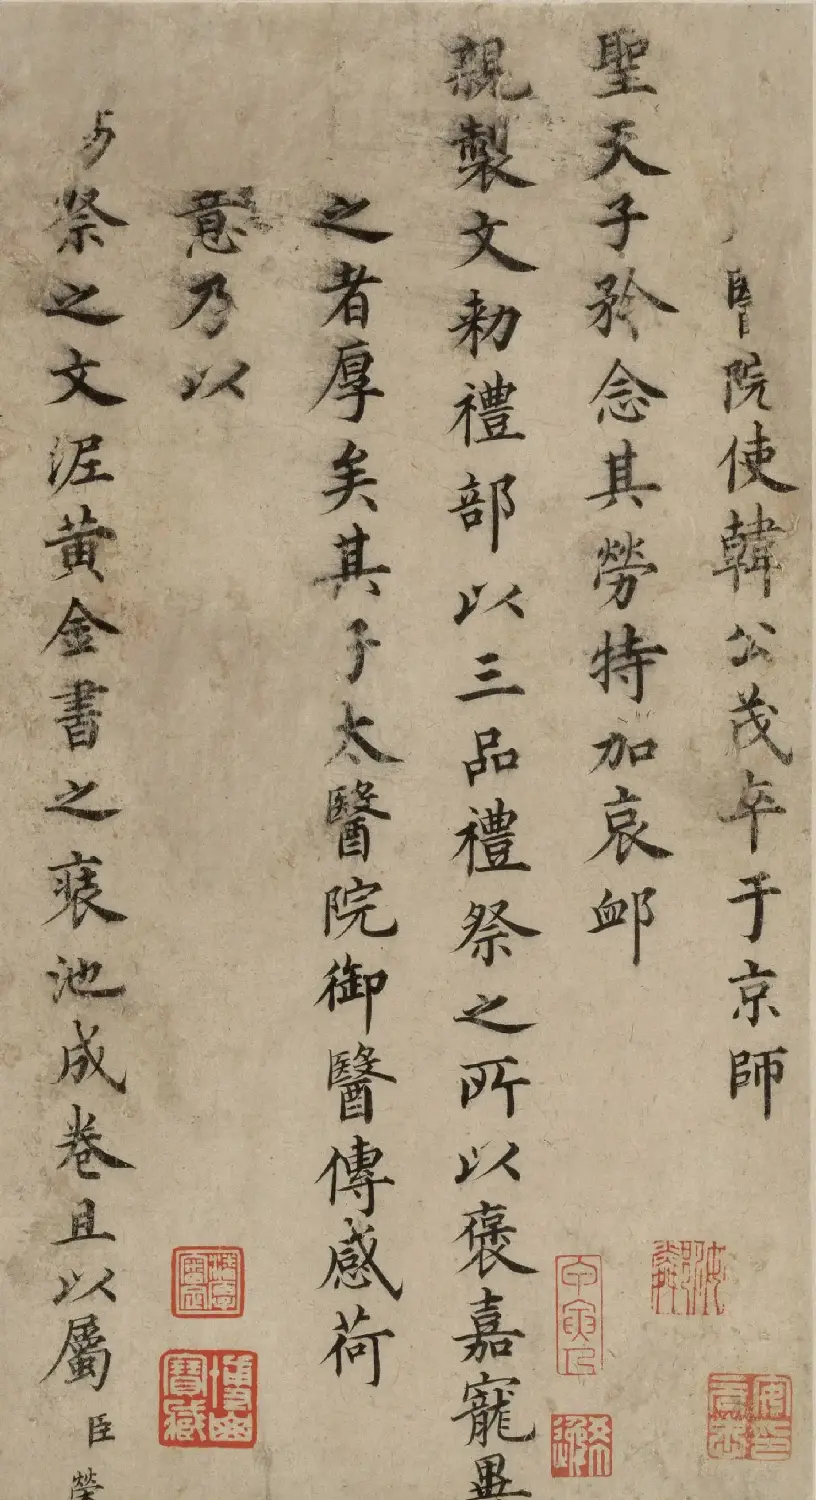 醫院使韓公茂卒于京師
聖天子矜念其勞特加哀卹
親製文勅禮部以三品禮祭之所以褒嘉寵畀
之者厚矣其子太醫院御醫傳感荷
意乃以
祭之文泥黃金書之裱池成卷且以屬臣榮